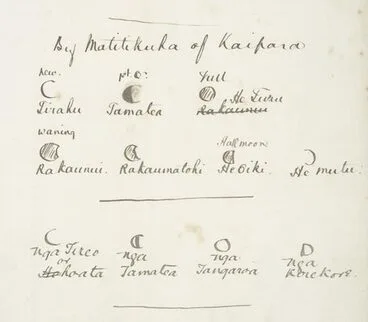 By Matitikuha of Kaipara
new. 1st Q: Full
Tirahu Tamatea Rakaunui He Turu
waning Half moon
Rakaunui. Rakaumatohi He Oiki. He mutu.
nga Tireo nga nga nga
or Tamatea Tangaroa Korekore.
Hohoata